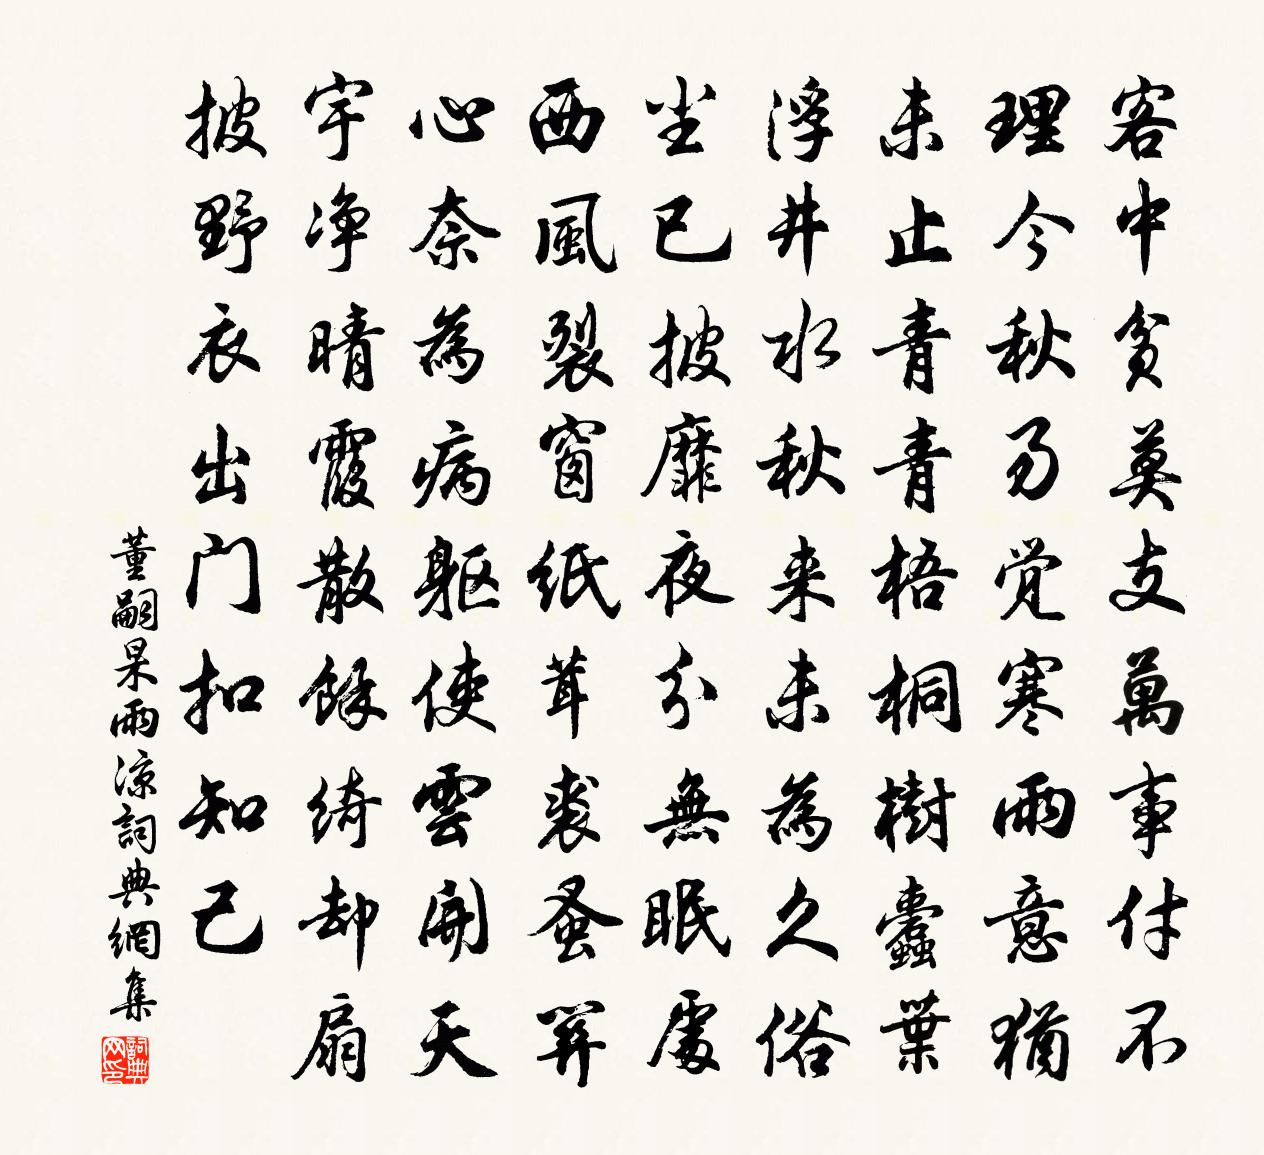 客中貧莫支萬事付不
理今秋易覚寒雨意猶
未止青青梧桐樹蠹葉
浮井水秋来未為久俗
尘已披靡夜分無眠處
西風裂窗紙茸裘蚤弃
心奈為病躯使雲開天
宇净晴霞散餘綺却扇
披野衣出门扣知己
董嗣杲雨凉詞典網集
詞典网印